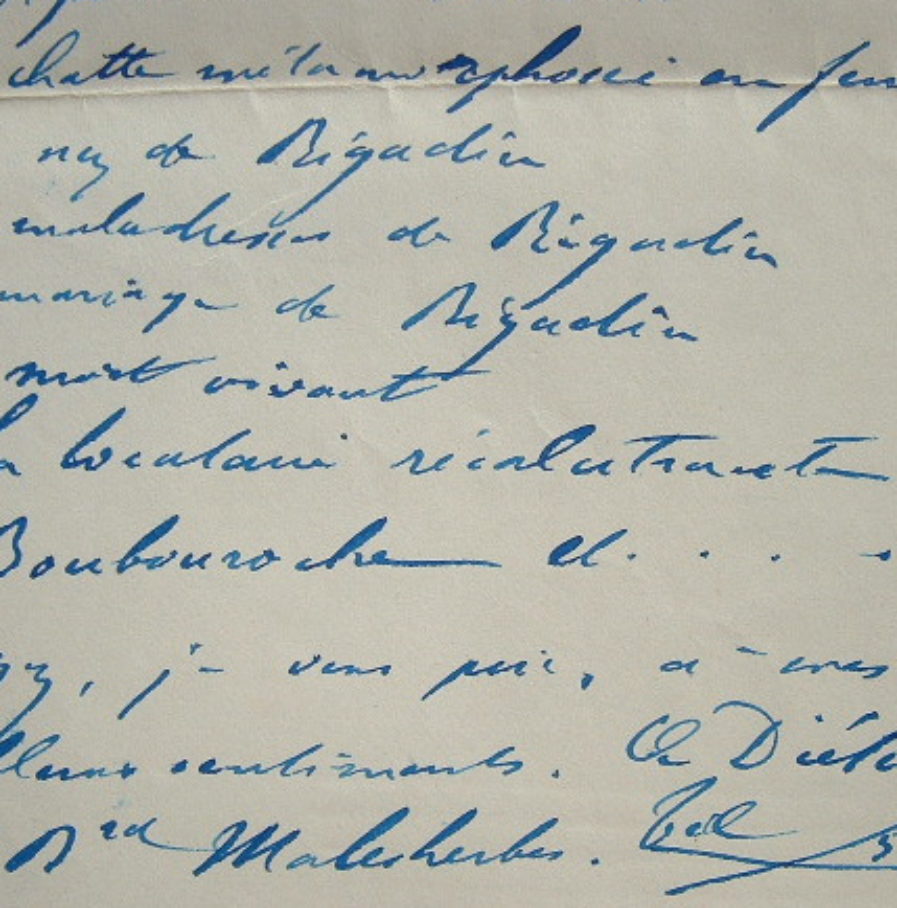 chatte métamorphosée en fem
nez de Rigadin
maladresses de Rigadin
mariage de Rigadin
mort vivant
a locataire récalcitrante
Boubouroche et. . . .
ez, je vous prie, à mes
lleurs sentiments. Ch Diéla
Brd Malesherbes. Tél